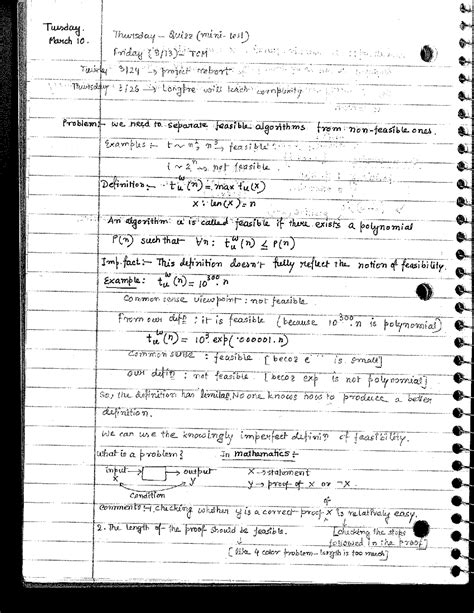 Tuesday
March 10.
Thursday - Quizz (mini-test)
Friday (3/13) - TCM
Tuesday 3/24 → project report
Thursday 3/26 → Longpre will teach complexity
Problem:- we need to separate feasible algorithms from non-feasible ones.
Examples:- t ~ n², n³ → feasible
t ~ 2ⁿ → not feasible.
Definition:- t_u^w(n) = max t_u(x)
x : len(x)=n
An algorithm u is called feasible if there exists a polynomial
P(n) such that ∀n: t_u^w(n) ≤ P(n)
Imp.fact:- This definition doesn't fully reflect the notion of feasibility.
Example: t_u^w(n) = 10^300.n
Common sense viewpoint : not feasible
From our defn : it is feasible (because 10^300.n is polynomial)
t_u^w(n) = 10³.exp(.000001.n)
Common sense : feasible [becoz e is small]
our defin : not feasible [becoz exp is not polynomial]
So, the definition has No one knows how to produce a better
definition.
We can use the knowingly imperfect definin of feasibility.
What is a problem? In mathematics :-
input → output x → statement
x y y → proof of x or ¬x.
Condition
Comments:- checking whether y is a correct proof of x is relatively easy.
2. The length of the proof should be feasible. [checking the steps
followed in the proof]
[like 4 color problem - length is too much]